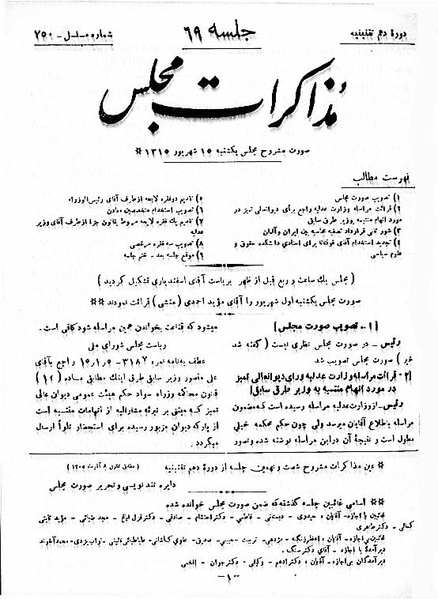 دورهٔ دهم تقنینیه
جلسه ۶۹
شماره مسلسل - ۲۵۰
مذاکرات مجلس
صورت مشروح مجلس یکشنبه ۱۵ شهریور ۱۳۱۵ *
فهرست مطالب
۱) تصویب صورت مجلس
۲) قرائت مراسله وزارت عدلیه راجع برأی دیوانعالی تمیز در
مورد اتهام منتسبه بوزیر طرق سابق
۳) شور ثانی قرارداد تصفیه محاسبه بین ایران و آلمان
۴) تجدید استخدام آقای برای استادی دانشکده حقوق و
علوم سیاسی
۵) تقدیم دو فقره لایحه از طرف آقای رئیس الوزراء
۶) تصویب استخدام متخصصین معادن
۷) تقدیم یک فقره لایحه مربوط بقانون جزا از طرف آقای وزیر
عدلیه
۸) تصویب سه فقره مرخصی
۹) موقع جلسه بعد - ختم جلسه
(مجلس یک ساعت و ربع قبل از ظهر بریاست آقای اسفندیاری تشکیل گردید)
صورت مجلس یکشنبه اول شهریور را آقای مؤید احمدی (منشی) قرائت نمودند **
[۱ - تصویب صورت مجلس]
رئیس - در صورت مجلس نظری نیست؟ (گفته شد
خیر) صورت مجلس تصویب شد
[۲ - قرائت مراسله وزارت عدلیه و رأی دیوانعالی تمیز
در مورد اتهام منتسبه به وزیر طرق سابق]
رئیس - از وزارت عدلیه مراسله رسیده است که مضمون
مراسله باطلاع آقایان میرسد ولی چون حکم محکمه خیلی
مطول است و نتیجهٔ آن در این مراسله نوشته شده و تصور
میشود که قناعت بخواندن همین مراسله شود کافی است.
ریاست مجلس شورای ملی
عطف بنامه نمره ۳۱۸۷ - ۱۵ر۱ر۱۵ راجع بآقای
علی منصور وزیر سابق طرق اینک مطابق ماده (۱۲)
قانون محاکمه وزراء سواد حکم هیئت عمومی دیوان عالی
تمیز که مبنی بر تبرئه مشارالیه از اتهامات منتسبه است
از پارکه دیوان مزبور رسیده برای استحضار تلواً ارسال
میگردد.
* عین مذاکرات مشروح شصت و نهمین جلسه از دورهٔ دهم تقنینیه (مطابق قانون ۸ آذرماه ۱۳۰۵)
دایره تند نویسی و تحریر صورت مجلس
** اسامی غائبین جلسه گذشته که ضمن صورت مجلس خوانده شده
غائبین با اجازه - آقایان: - - - - - - مجد ضیائی - مؤید ثابتی
کمالی - دکتر طاهری
غائبین بی اجازه - آقایان: - - - - - - - نواب یزدی -
دیرآمدگان با اجازه - آقای دکتر سنگ.
دیرآمدگان بی اجازه - آقایان: دکتر ادهم - وکیلی - دکتر جوان - افخمی
- ۱ -